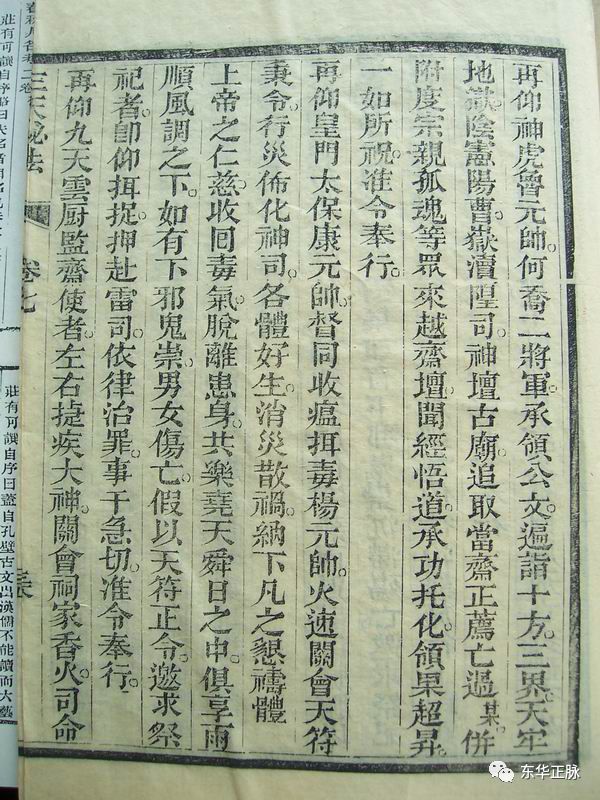 再仰神虎魯元帥。何喬二將軍。承領公文。遍詣十方。三界。天牢
地獄。陰憲陽曹。嶽瀆隍司。神壇古廟。追取當齋正薦亡過某。併
附度宗親孤魂等眾。來越齋壇。聞經悟道。承功托化。領果超昇。
一如所祝。准令奉行。
再仰皇門太保康元帥。督同收瘟揖毒楊元帥。火速關會天符
秉令。行災佈化神司。各體好生。消災散禍。納下凡之懇禱。體
上帝之仁慈。收回毒氣。脫離患身。共樂堯天舜日之中。俱享雨
順風調之下。如有下邪鬼祟。男女傷亡。假以天符正令。邀求祭
祀者。卽仰揖捉。押赴雷司。依律治罪。事干急切。准令奉行。
再仰九天雲厨監齋使者。左右捷疾大神。關會祠家香火。司命
卷七
莊有可讀自序曰蓋自孔壁古文出漢儒不能讀而大藝
东华正脉